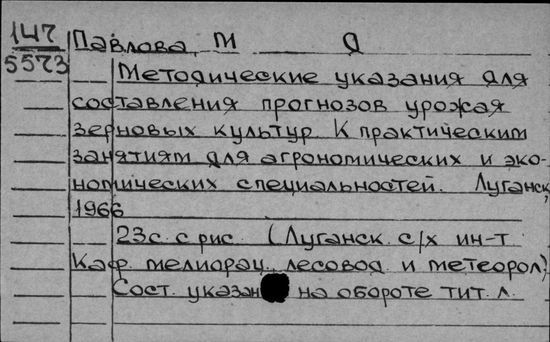 147
5573
Павлова, М Д
Методические указания для
составления прогнозов урожая
зерновых культур. К практическим
занятиям для агрономических и эко-
номических специальностей. Луганск,
1966
23с. с рис. (Луганск. с/х ин-т.
Каф. мелиорац., лесовод. и метеорол.)
Сост. указан на обороте тит. л.